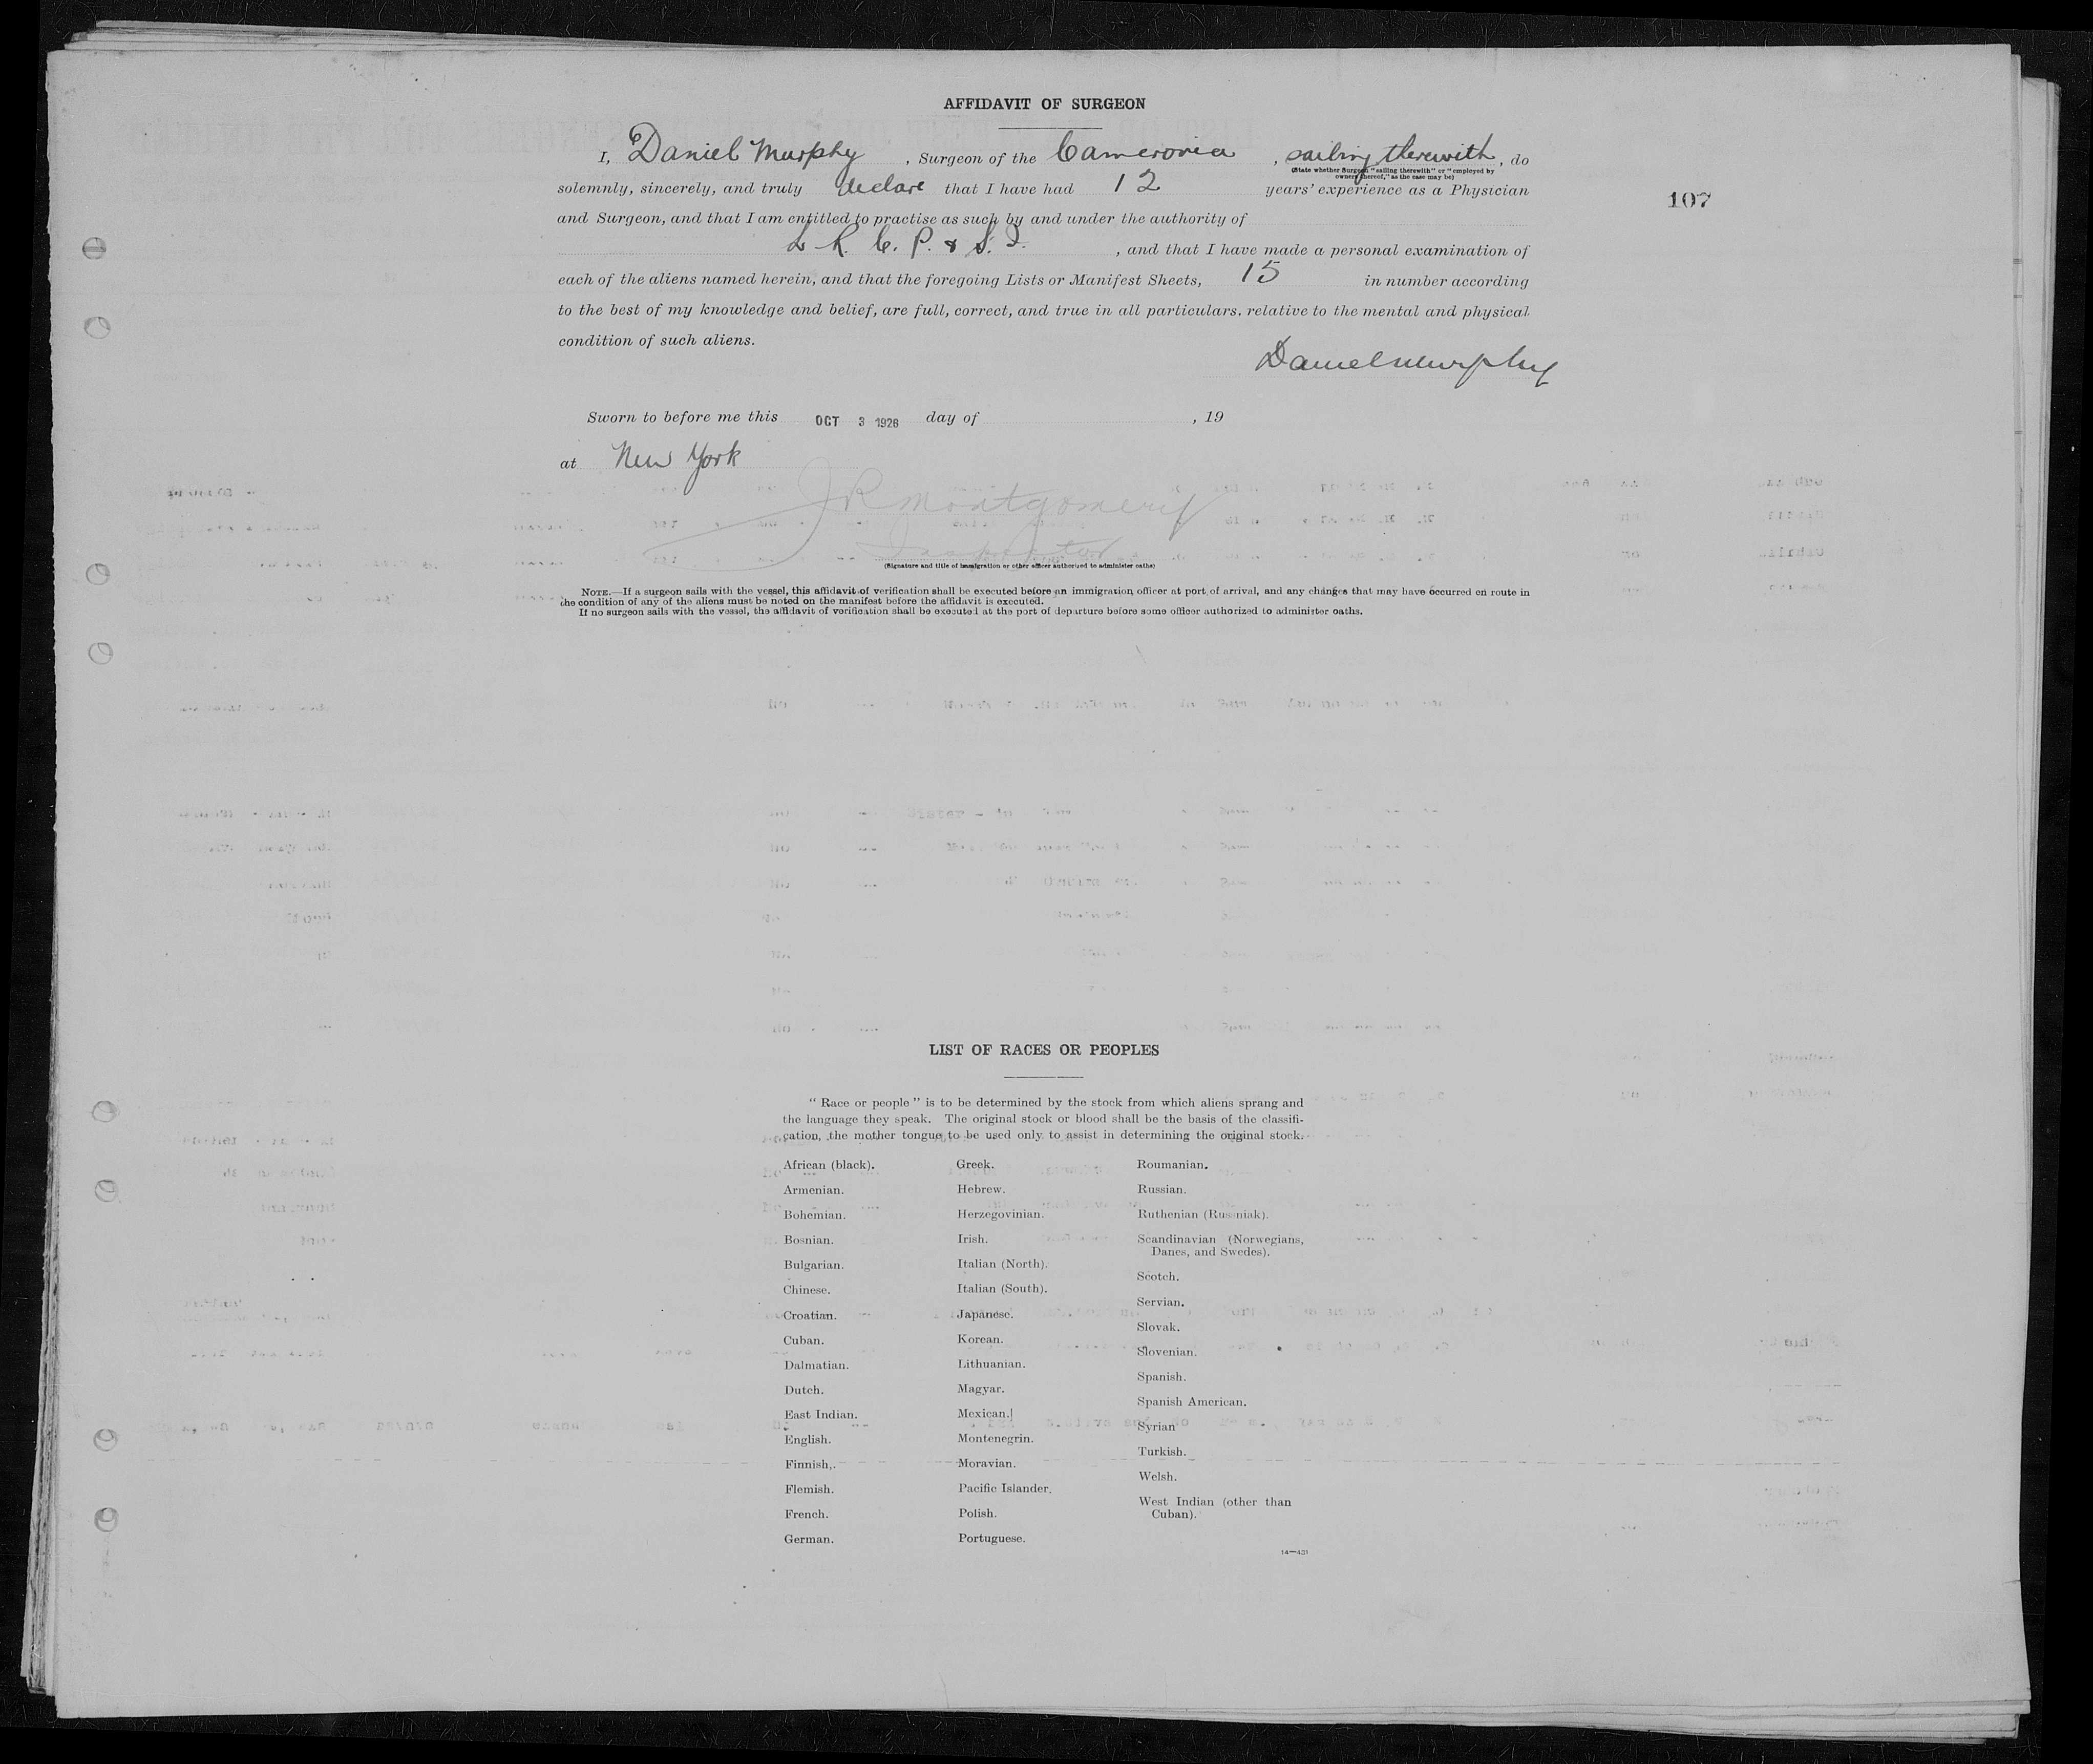 AFFIDAVIT OF SURGEON
I, Daniel Murphy, Surgeon of the Cameronia, sailing therewith, do
(State whether Surgeon "sailing therewith" or "employed by
owners thereof," as the case may be)
solemnly, sincerely, and truly declare that I have had 12 years' experience as a Physician
107
and Surgeon, and that I am entitled to practise as such by and under the authority of
L. R. C. P. & S. I., and that I have made a personal examination of
each of the aliens named herein, and that the foregoing Lists or Manifest Sheets, 15 in number according
to the best of my knowledge and belief, are full, correct, and true in all particulars, relative to the mental and physical
condition of such aliens.
Daniel Murphy
Sworn to before me this OCT 3 1926 day of , 19
at New York
J R Montgomery
Inspector
(Signature and title of immigration or other officer authorized to administer oaths)
NOTE.—If a surgeon sails with the vessel, this affidavit of verification shall be executed before an immigration officer at port of arrival, and any changes that may have occurred en route in
the condition of any of the aliens must be noted on the manifest before the affidavit is executed.
If no surgeon sails with the vessel, the affidavit of verification shall be executed at the port of departure before some officer authorized to administer oaths.
LIST OF RACES OR PEOPLES
"Race or people" is to be determined by the stock from which aliens sprang and
the language they speak. The original stock or blood shall be the basis of the classifi-
cation, the mother tongue to be used only to assist in determining the original stock.
African (black).
Armenian.
Bohemian.
Bosnian.
Bulgarian.
Chinese.
Croatian.
Cuban.
Dalmatian.
Dutch.
East Indian.
English.
Finnish.
Flemish.
French.
German.
Greek.
Hebrew.
Herzegovinian.
Irish.
Italian (North).
Italian (South).
Japanese.
Korean.
Lithuanian.
Magyar.
Mexican.
Montenegrin.
Moravian.
Pacific Islander.
Polish.
Portuguese.
Roumanian.
Russian.
Ruthenian (Russniak).
Scandinavian (Norwegians,
Danes, and Swedes).
Scotch.
Servian.
Slovak.
Slovenian.
Spanish.
Spanish American.
Syrian
Turkish.
Welsh.
West Indian (other than
Cuban).
14—431